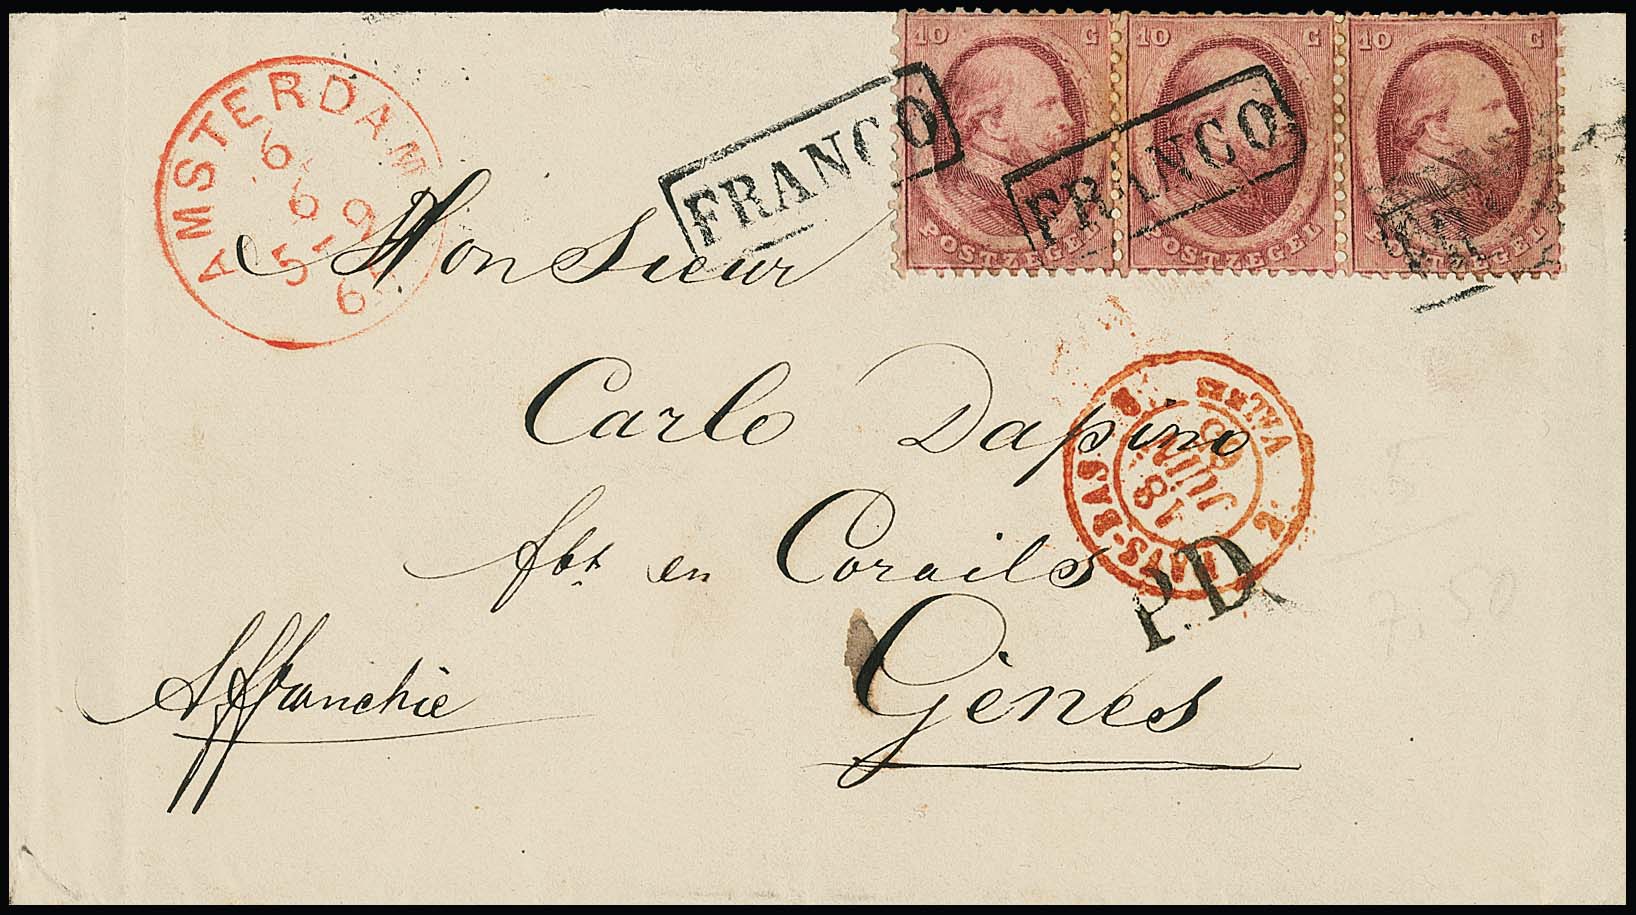 10 C 10 C 10 C
POSTZEGEL POSTZEGEL POSTZEGEL
FRANCO FRANCO
AMSTERDAM
6
6 9
5-9
6
Monsieur
Carlo Dapino
fbt en Corails
Gènes
Affranchie
PAYS-BAS
2
18
JUIN
P.D.
5
7,50